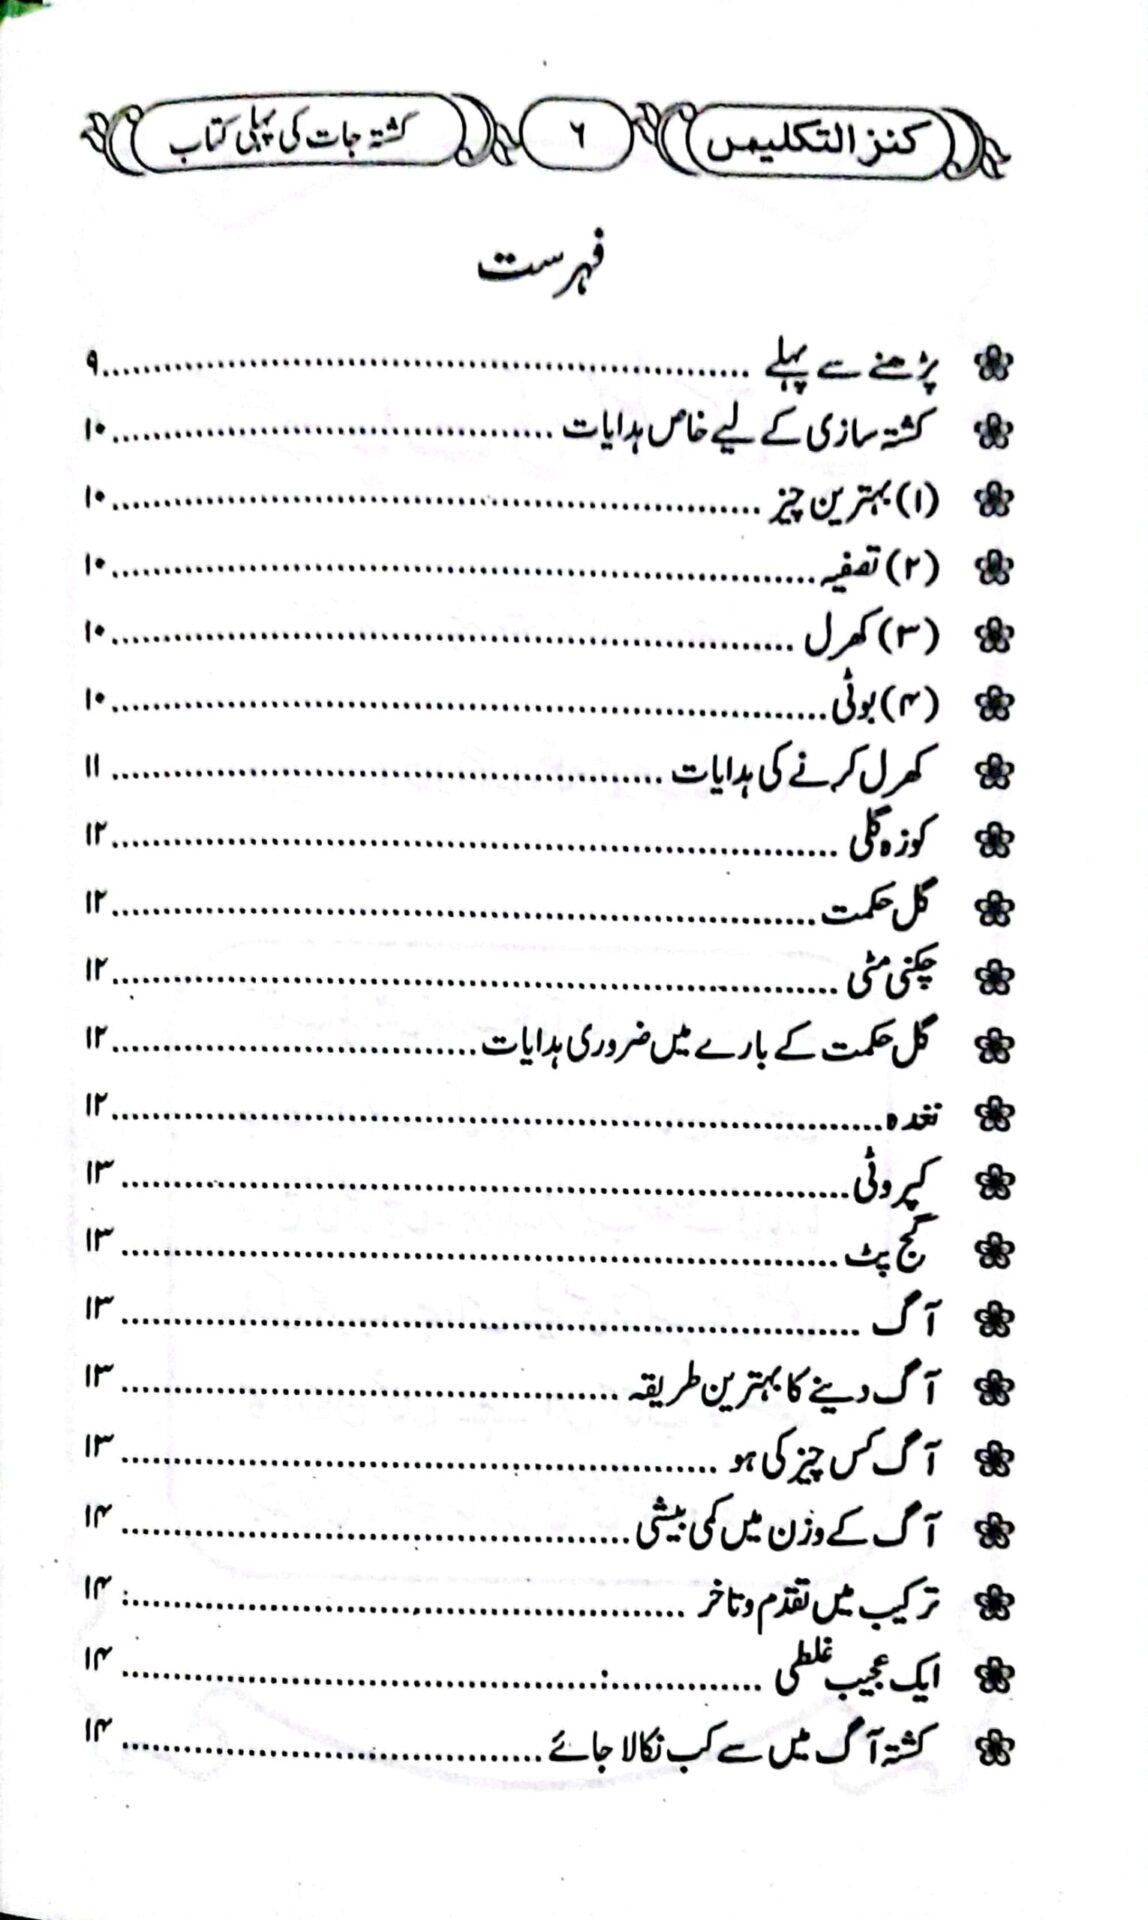 کنز التکلیس ۶ کشتہ جات کی پہلی کتاب
فہرست
پڑھنے سے پہلے ۹
کشتہ سازی کے لیے خاص ہدایات ۱۰
(۱) بہترین چیز ۱۰
(۲) تصفیہ ۱۰
(۳) کھرل ۱۰
(۴) بوٹی ۱۰
کھرل کرنے کی ہدایات ۱۱
کوزہ گلی ۱۲
گل حکمت ۱۲
چکنی مٹی ۱۲
گل حکمت کے بارے میں ضروری ہدایات ۱۲
نغدہ ۱۲
کپروٹی ۱۳
گج پٹ ۱۳
آگ ۱۳
آگ دینے کا بہترین طریقہ ۱۳
آگ کس چیز کی ہو ۱۳
آگ کے وزن میں کمی بیشی ۱۴
ترکیب میں تقدم و تاخر ۱۴
ایک عجیب غلطی ۱۴
کشتہ آگ میں سے کب نکالا جائے ۱۴